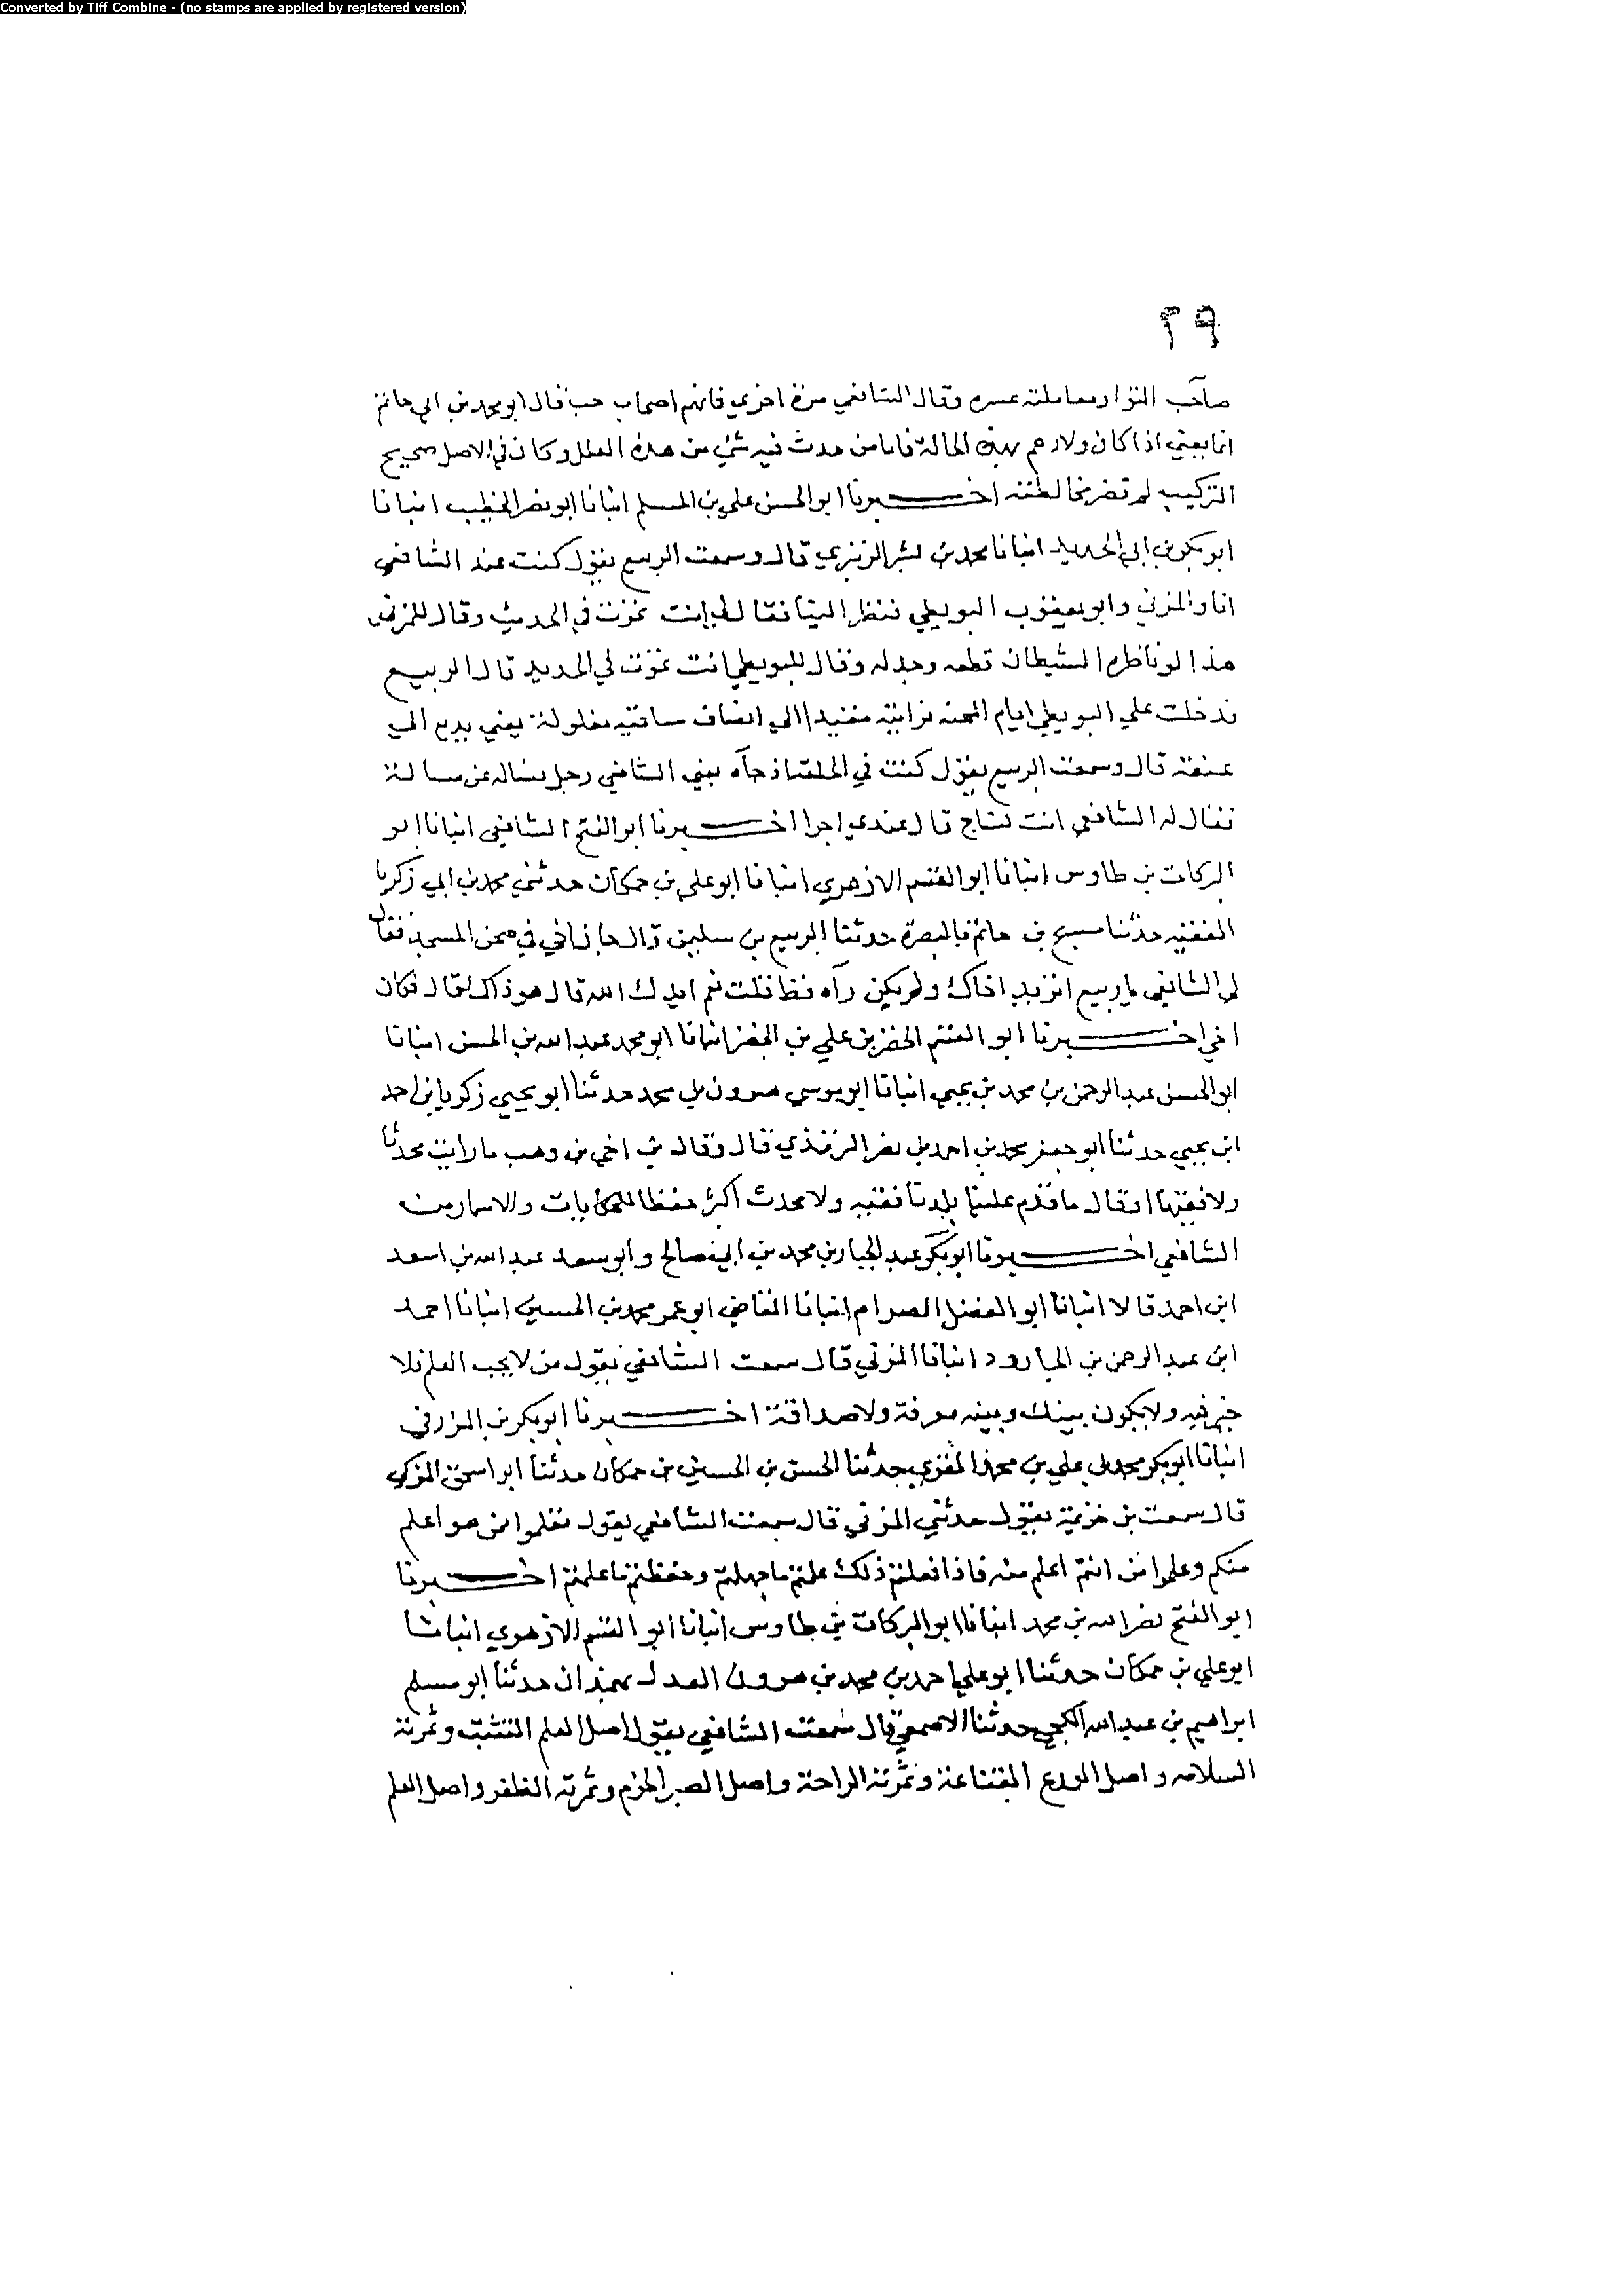 Converted by Tiff Combine - (no stamps are applied by registered version)
٣٩
صاحب التوا ومعاملته عسره وقال الشافعي مرة اخرى فانهم اصحاب خب قال ابو محمد بن ابي حاتم
انما يعني اذا كان ولادهم بهذه الحالة فاما من حدث فيه شئ من هذه العلل وكان في الاصل صحيح
التركيب لم تضر مخالطته اخبرنا ابو الحسن علي بن المسلم انبانا ابو نصر الخطيب انبانا
ابو بكر بن ابي الحديد انبانا محمد بن بشر الزبيري قال وسمعت الربيع يقول كنت عند الشافعي
انا والمزني وابو يعقوب البويطي فنظر الينا فقال لي انت تموت في الحديث وقال للمزني
هذا لو ناظره الشيطان قطعه وجدله وقال للبويطي انت تموت في الحديد قال الربيع
فدخلت على البويطي ايام المحنه فرايته مقيدا الى انصاف ساقيه مغلولة يعني يديه الى
عنقه قال وسمعت الربيع يقول كنت في الحلقة اذ جآه يعني الشافعي رجل يساله عن مسالة
فقال له الشافعي انت نساج قال عندي اجرا اخبرنا ابو الفتح الشافعي انبانا ابو
البركات بن طاوس انبانا ابو القسم الازهري انبانا ابو علي بن حمكان حدثني محمد بن ابي زكريا
الفقيه حدثنا مسبح بن حاتم بالبصرة حدثنا الربيع بن سليمن قال جاز اخي في صحن المسجد فقال
لي الشافعي يا ربيع اتريد اخاك ولم يكن رآه قط فقلت نعم ايدك الله قال هو ذاك قال فكان
اخي اخبرنا ابو القسم الخضر بن علي بن الخضر انبانا ابو محمد عبد الله بن الحسن انبانا
ابو الحسن عبد الرحمن بن محمد بن يحيى انبانا ابو موسى هرون بن محمد حدثنا ابو يحيى زكريا بن احمد
ابن يحيى حدثنا ابو جعفر محمد بن احمد بن نصر الترمذي قال وقال بن اخي بن وهب ما رايت محدثا
ولا فقيها او قال ما قدم علينا بلدنا فقيه ولا محدث اكثر حفظا للحكايات والاسمار من
الشافعي اخبرنا ابو بكر عبد الجبار بن محمد بن ابي صالح وابو سعد عبد الله بن اسعد
ابن احمد قالا انبانا ابو الفضل الصرام انبانا القاضي ابو عمر محمد بن الحسين انبانا احمد
ابن عبد الرحمن بن الجارود انبانا المزني قال سمعت الشافعي يقول من لا يحب العلم فلا
خير فيه ولا يكون بينك وبينه معرفة ولا صداقة اخبرنا ابو بكر بن المزرفي
انبانا ابو بكر محمد بن علي بن محمد المقري حدثنا الحسن بن الحسين بن حمكان حدثنا ابو اسحق المزكي
قال سمعت بن خزيمة يقول حدثني المزني قال سمعت الشافعي يقول تعلموا من هو اعلم
منكم وعلموا من انتم اعلم منه فاذا فعلتم ذلك علمتم ما جهلتم وحفظتم ما علمتم اخبرنا
ابو الفتح نصر الله بن محمد انبانا ابو البركات بن طاوس انبانا ابو القسم الازهري انبانا
ابو علي بن حمكان حدثنا ابو علي احمد بن محمد بن هرون العدل بهمذان حدثنا ابو مسلم
ابراهيم بن عبد الله الكجي حدثنا الاصمعي قال سمعت الشافعي يقول اصل العلم التثبت وثمرته
السلامه واصل الورع القناعة وثمرته الراحة واصل الصبر الحزم وثمرته الظفر واصل العلم